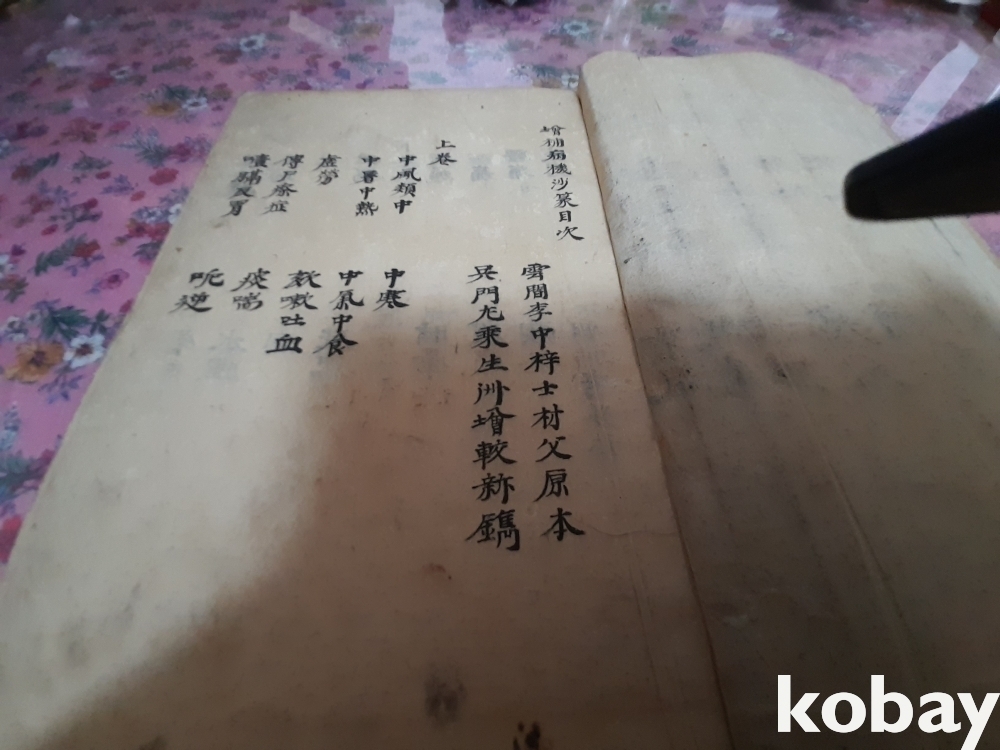 增補病機沙篆目次
雲間李中梓士材父原本
吳門尤乘生洲增較新鐫
上卷
中風類中
中寒
中暑中熱
中氣中食
虛勞
咳嗽吐血
傳尸療症
痰喘
噎膈反胃
呃逆
kobay